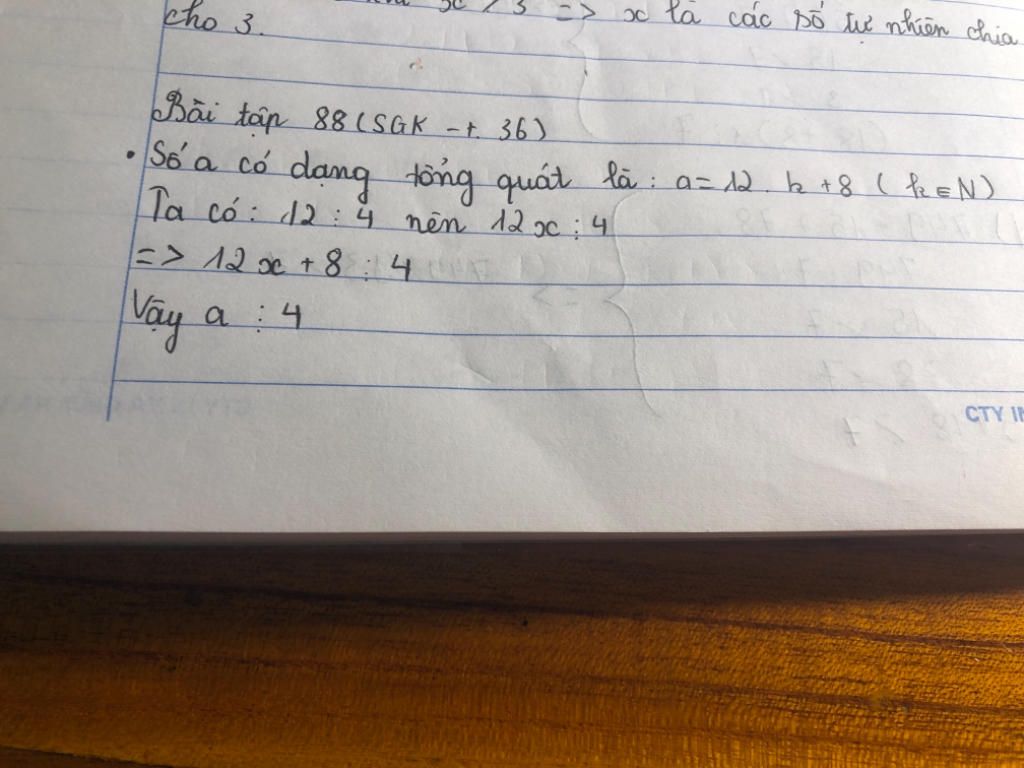 x là các số tự nhiên chia
cho 3.
Bài tập 88 (SGK - t. 36)
• Số a có dạng tổng quát là : a = 12 . k + 8 ( k ∈ N )
Ta có : 12 ⋮ 4 nên 12x ⋮ 4
=> 12x + 8 ⋮ 4
Vậy a ⋮ 4
CTY